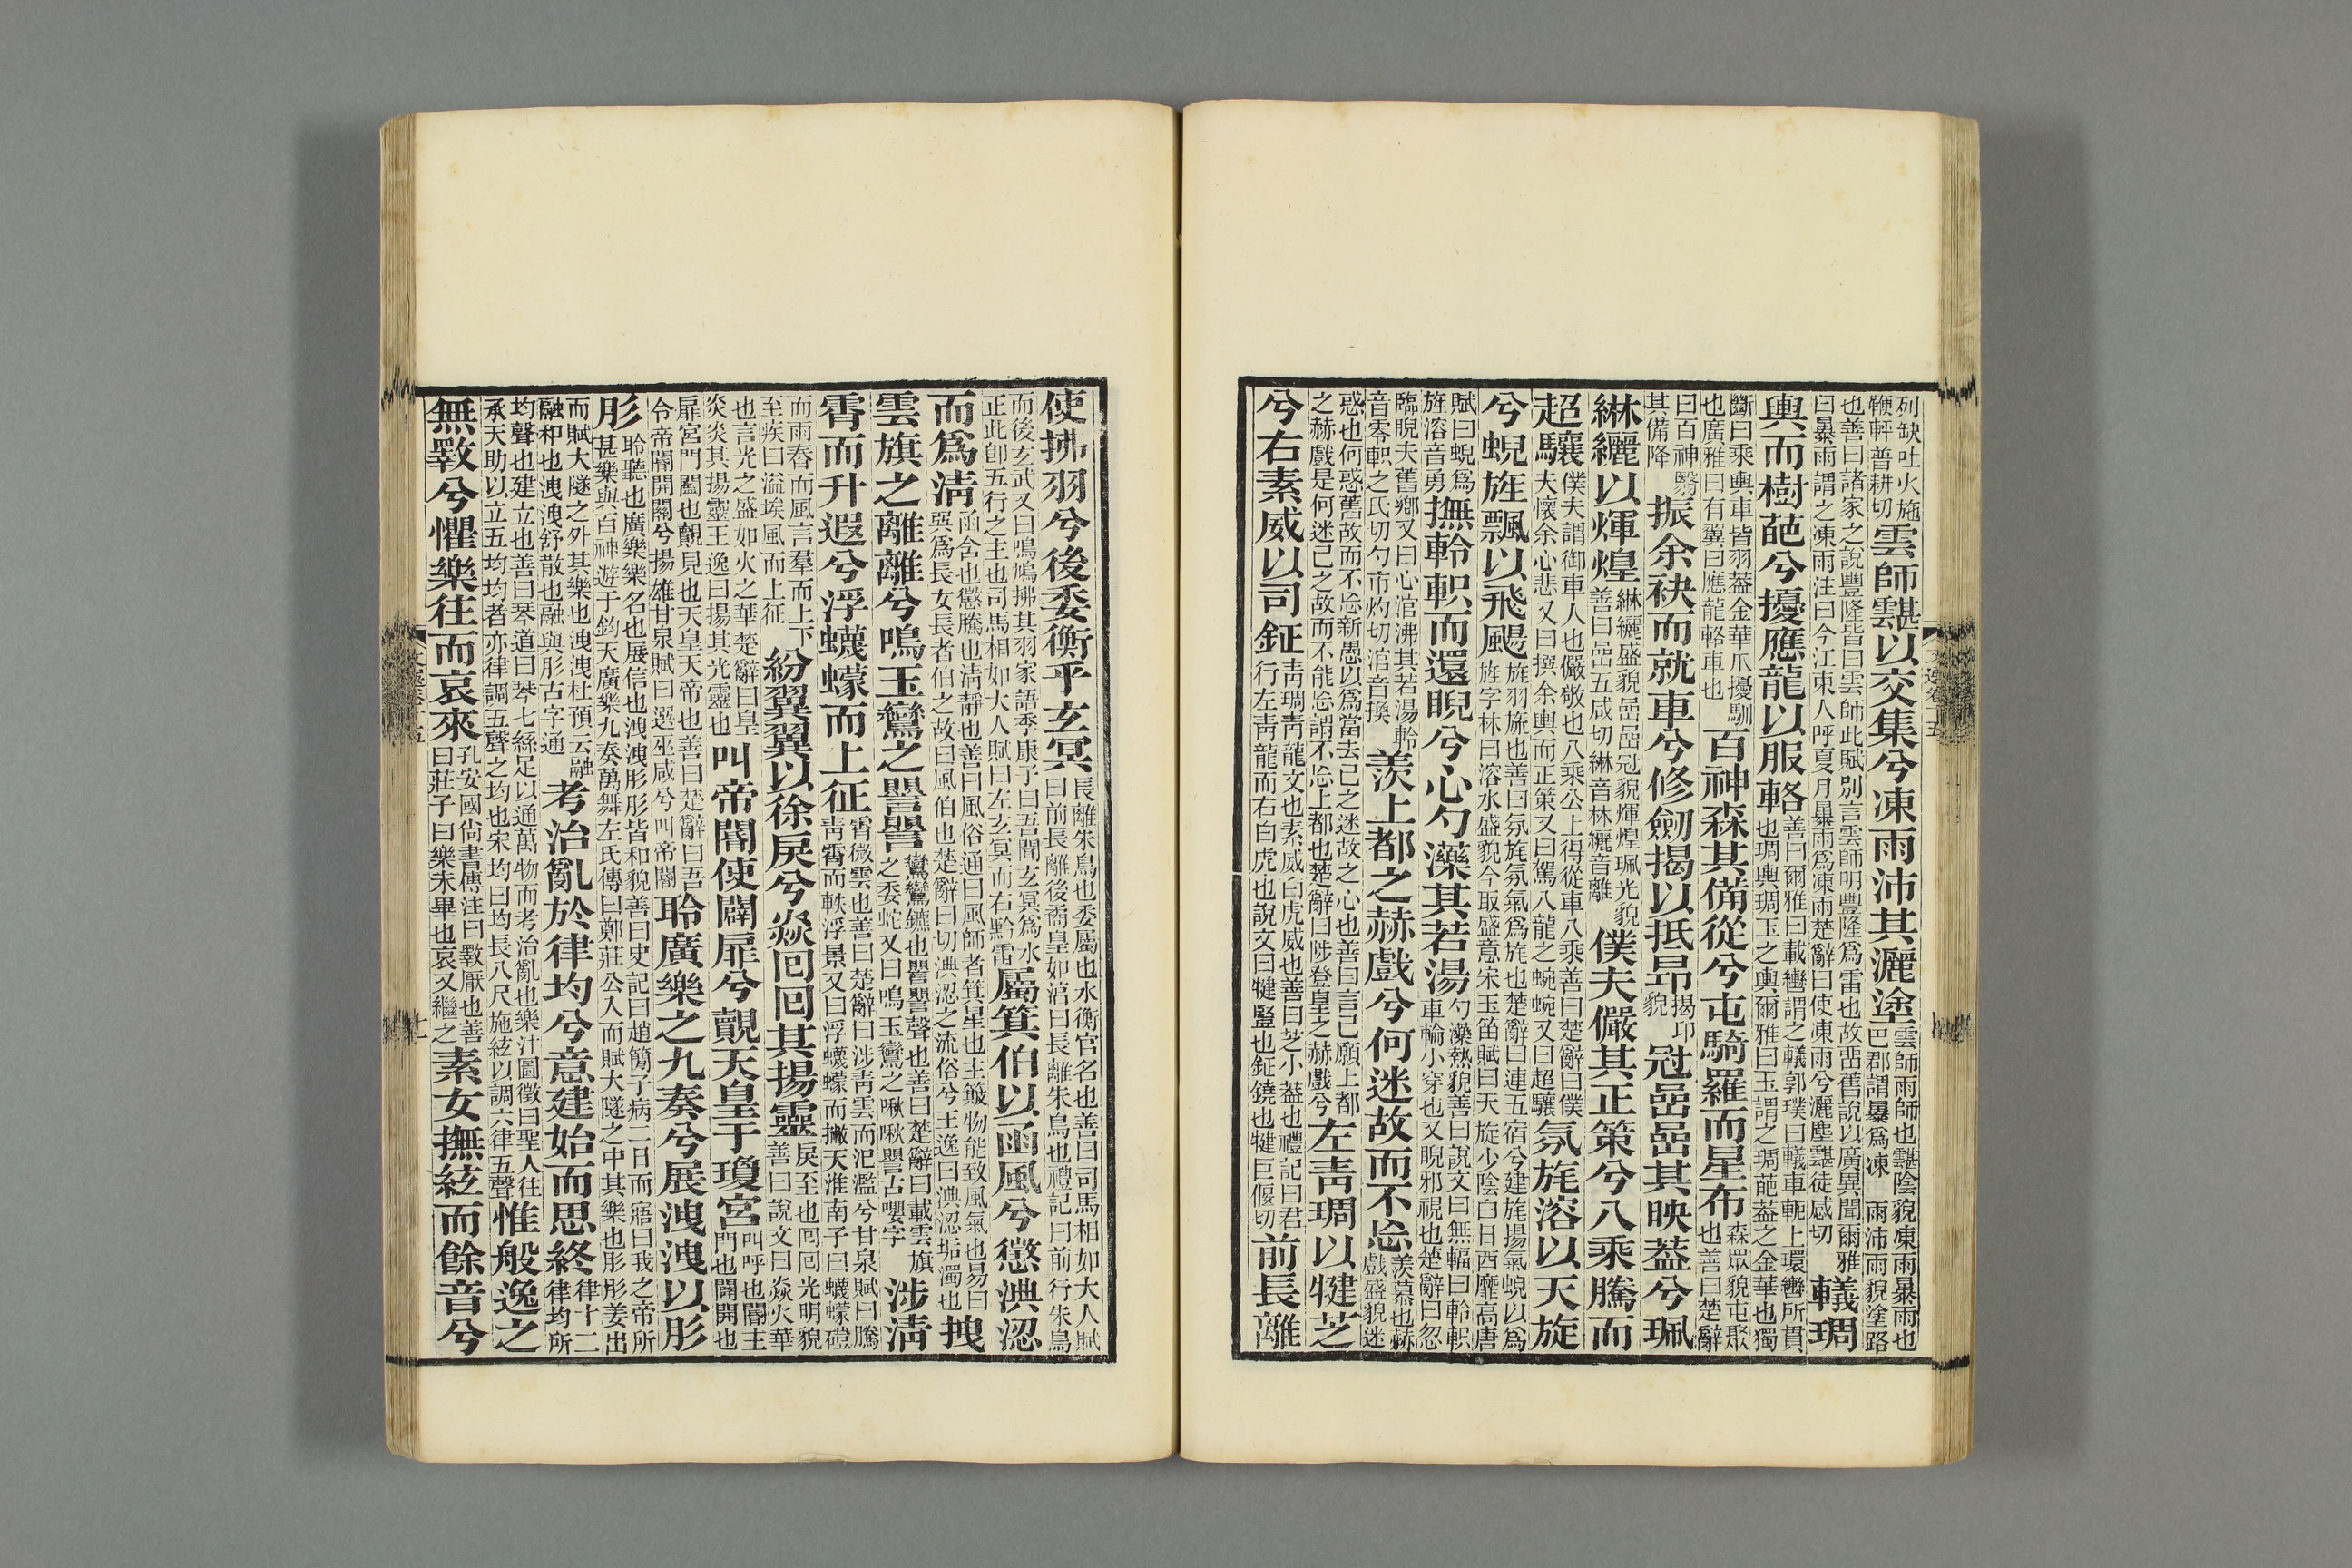 列缺吐火施鞭軒普耕切雲師䨴以交集兮凍雨沛其灑塗雲師雨師也䨴陰貌凍雨暴雨也巴郡謂暴爲凍 雨沛雨貌塗路
也善曰諸家之說豐隆皆曰雲師此賦別言雲師明豐隆爲雷也故畱舊說以廣異聞爾雅曰暴雨謂之凍雨注曰今江東人呼夏月暴雨爲凍雨楚辭曰使凍雨兮灑塵䨴徒感切轙琱
輿而樹葩兮擾應龍以服輅善曰爾雅曰載轡謂之轙郭璞曰轙車軛上環轡所貫也琱輿琱玉之輿爾雅曰玉謂之琱葩葢之金華也獨
斷曰乘輿車皆羽葢金華爪擾馴也廣雅曰有翼曰應龍輅車也百神森其備從兮屯騎羅而星布森眾貌屯聚也善曰楚辭
曰百神翳其備降振余袂而就車兮修劒揭以抵昂揭卬貌冠嵒嵒其映葢兮珮
綝纚以煇煌綝纚盛貌嵒嵒冠貌煇煌珮光貌善曰嵒五咸切綝音林纚音離僕夫儼其正策兮八乘騰而
超驤僕夫謂御車人也儼敬也八乘公上得從車八乘善曰楚辭曰僕夫懷余心悲又曰撰余輿而正策又曰駕八龍之蜿蜿又曰超驤氛旄溶以天旋
兮蜺旌飄以飛颺旌羽旄也善曰氛旄氛氣爲旄也楚辭曰連五宿兮建旄揚氣蜺以爲旌字林曰溶水盛貌今取盛意宋玉笛賦曰天旋少陰白日西靡高唐
賦曰蜺爲旌溶音勇撫軨軹而還睨兮心勺灤其若湯勺灤熱貌善曰說文曰無輻曰軨軹車輪小穿也又睨邪視也楚辭曰忽
臨睨夫舊鄉又曰心涫沸其若湯軨音零軹之氏切勺市灼切涫音換羨上都之赫戲兮何迷故而不忘羨慕也赫戲盛貌迷
惑也何惑舊故而不忘新愚以爲當去己之迷故之心也善曰言己願上都之赫戲是何迷己之故而不能忘謂不忘上都也楚辭曰陟登皇之赫戲兮左青琱以揵芝
兮右素威以司鉦青琱青龍文也素威白虎威也善曰芝小葢也禮記曰君行左青龍而右白虎也說文曰揵豎也鉦鐃也揵巨偃切前長離
使拂羽兮後委衡乎玄冥長離朱鳥也委屬也水衡官名也善曰司馬相如大人賦曰前長離後矞皇如淳曰長離朱鳥也禮記曰前行朱鳥
而後玄武又曰鳴鳩拂其羽家語季康子曰吾聞玄冥爲水正此卽五行之主也司馬相如大人賦曰左玄冥而右黔雷屬箕伯以函風兮懲淟涊
而爲清函含也懲騰也清靜也善曰風俗通曰風師者箕星也主簸物能致風氣也易曰巽爲長女長者伯之故曰風伯也楚辭曰切淟涊之流俗兮王逸曰淟涊垢濁也拽
雲旗之離離兮鳴玉鸞之譻譻鸞鸞鑣也譻譻聲也善曰楚辭曰載雲旗之委蛇又曰鳴玉鸞之啾啾譻古嚶字涉清
霄而升遐兮浮蠛蠓而上征霄微雲也善曰楚辭曰涉青雲而汜濫兮甘泉賦曰騰青霄而軼浮景又曰浮蠛蠓而撇天淮南子曰蠛蠓磑
而雨舂而風言羣而上下至疾曰溢埃風而上征紛翼翼以徐戾兮焱回回其揚靈戾至也回回光明貌善曰說文曰焱火華
也言光之盛如火之華楚辭曰皇炎炎其揚靈王逸曰揚其光靈也叫帝閽使闢扉兮覿天皇于瓊宮叫呼也閽主門也闢開也
扉宮門闔也覿見也天皇天帝也善曰楚辭曰吾令帝閽開關兮揚雄甘泉賦曰選巫咸兮叫帝閽聆廣樂之九奏兮展洩洩以肜
肜聆聽也廣樂樂名也展信也洩洩肜肜皆和貌善曰史記曰趙簡子病二日而寤曰我之帝所甚樂與百神遊于鈞天廣樂九奏萬舞左氏傳曰鄭莊公入而賦大隧之中其樂也肜肜姜出
而賦大隧之外其樂也洩洩杜預云融融和也洩洩舒散也融與肜古字通考治亂於律均兮意建始而思終律十二律均所
均聲也建立也善曰琴道曰琴七絲足以通萬物而考治亂也樂汁圖徵曰聖人往承天助以立五均均者亦律調五聲之均也宋均曰均長八尺施絃以調六律五聲惟般逸之
無斁兮懼樂往而哀來孔安國尙書傳注曰斁厭也善曰莊子曰樂未畢也哀又繼之素女撫絃而餘音兮